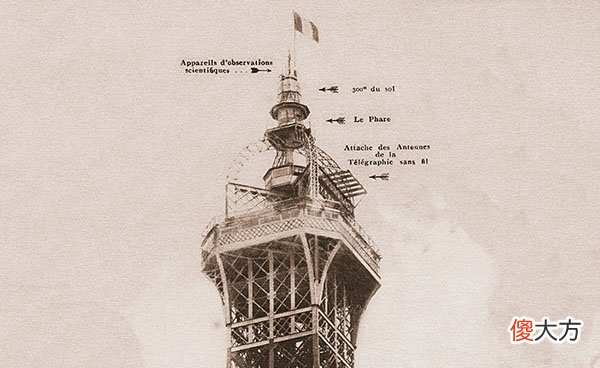 Appareils d'observations
scientifiques ...
300m du sol
Le Phare
Attache des Antennes
de la
Télégraphie sans fil
傻大方